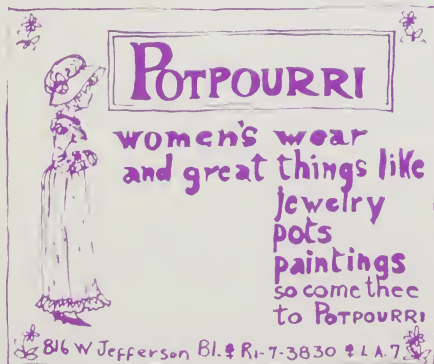 POTPOURRI
women's wear
and great things like
jewelry
pots
paintings
so come thee
to POTPOURRI
816 W Jefferson Bl. ♀ RI-7-3830 ♀ L.A. 7